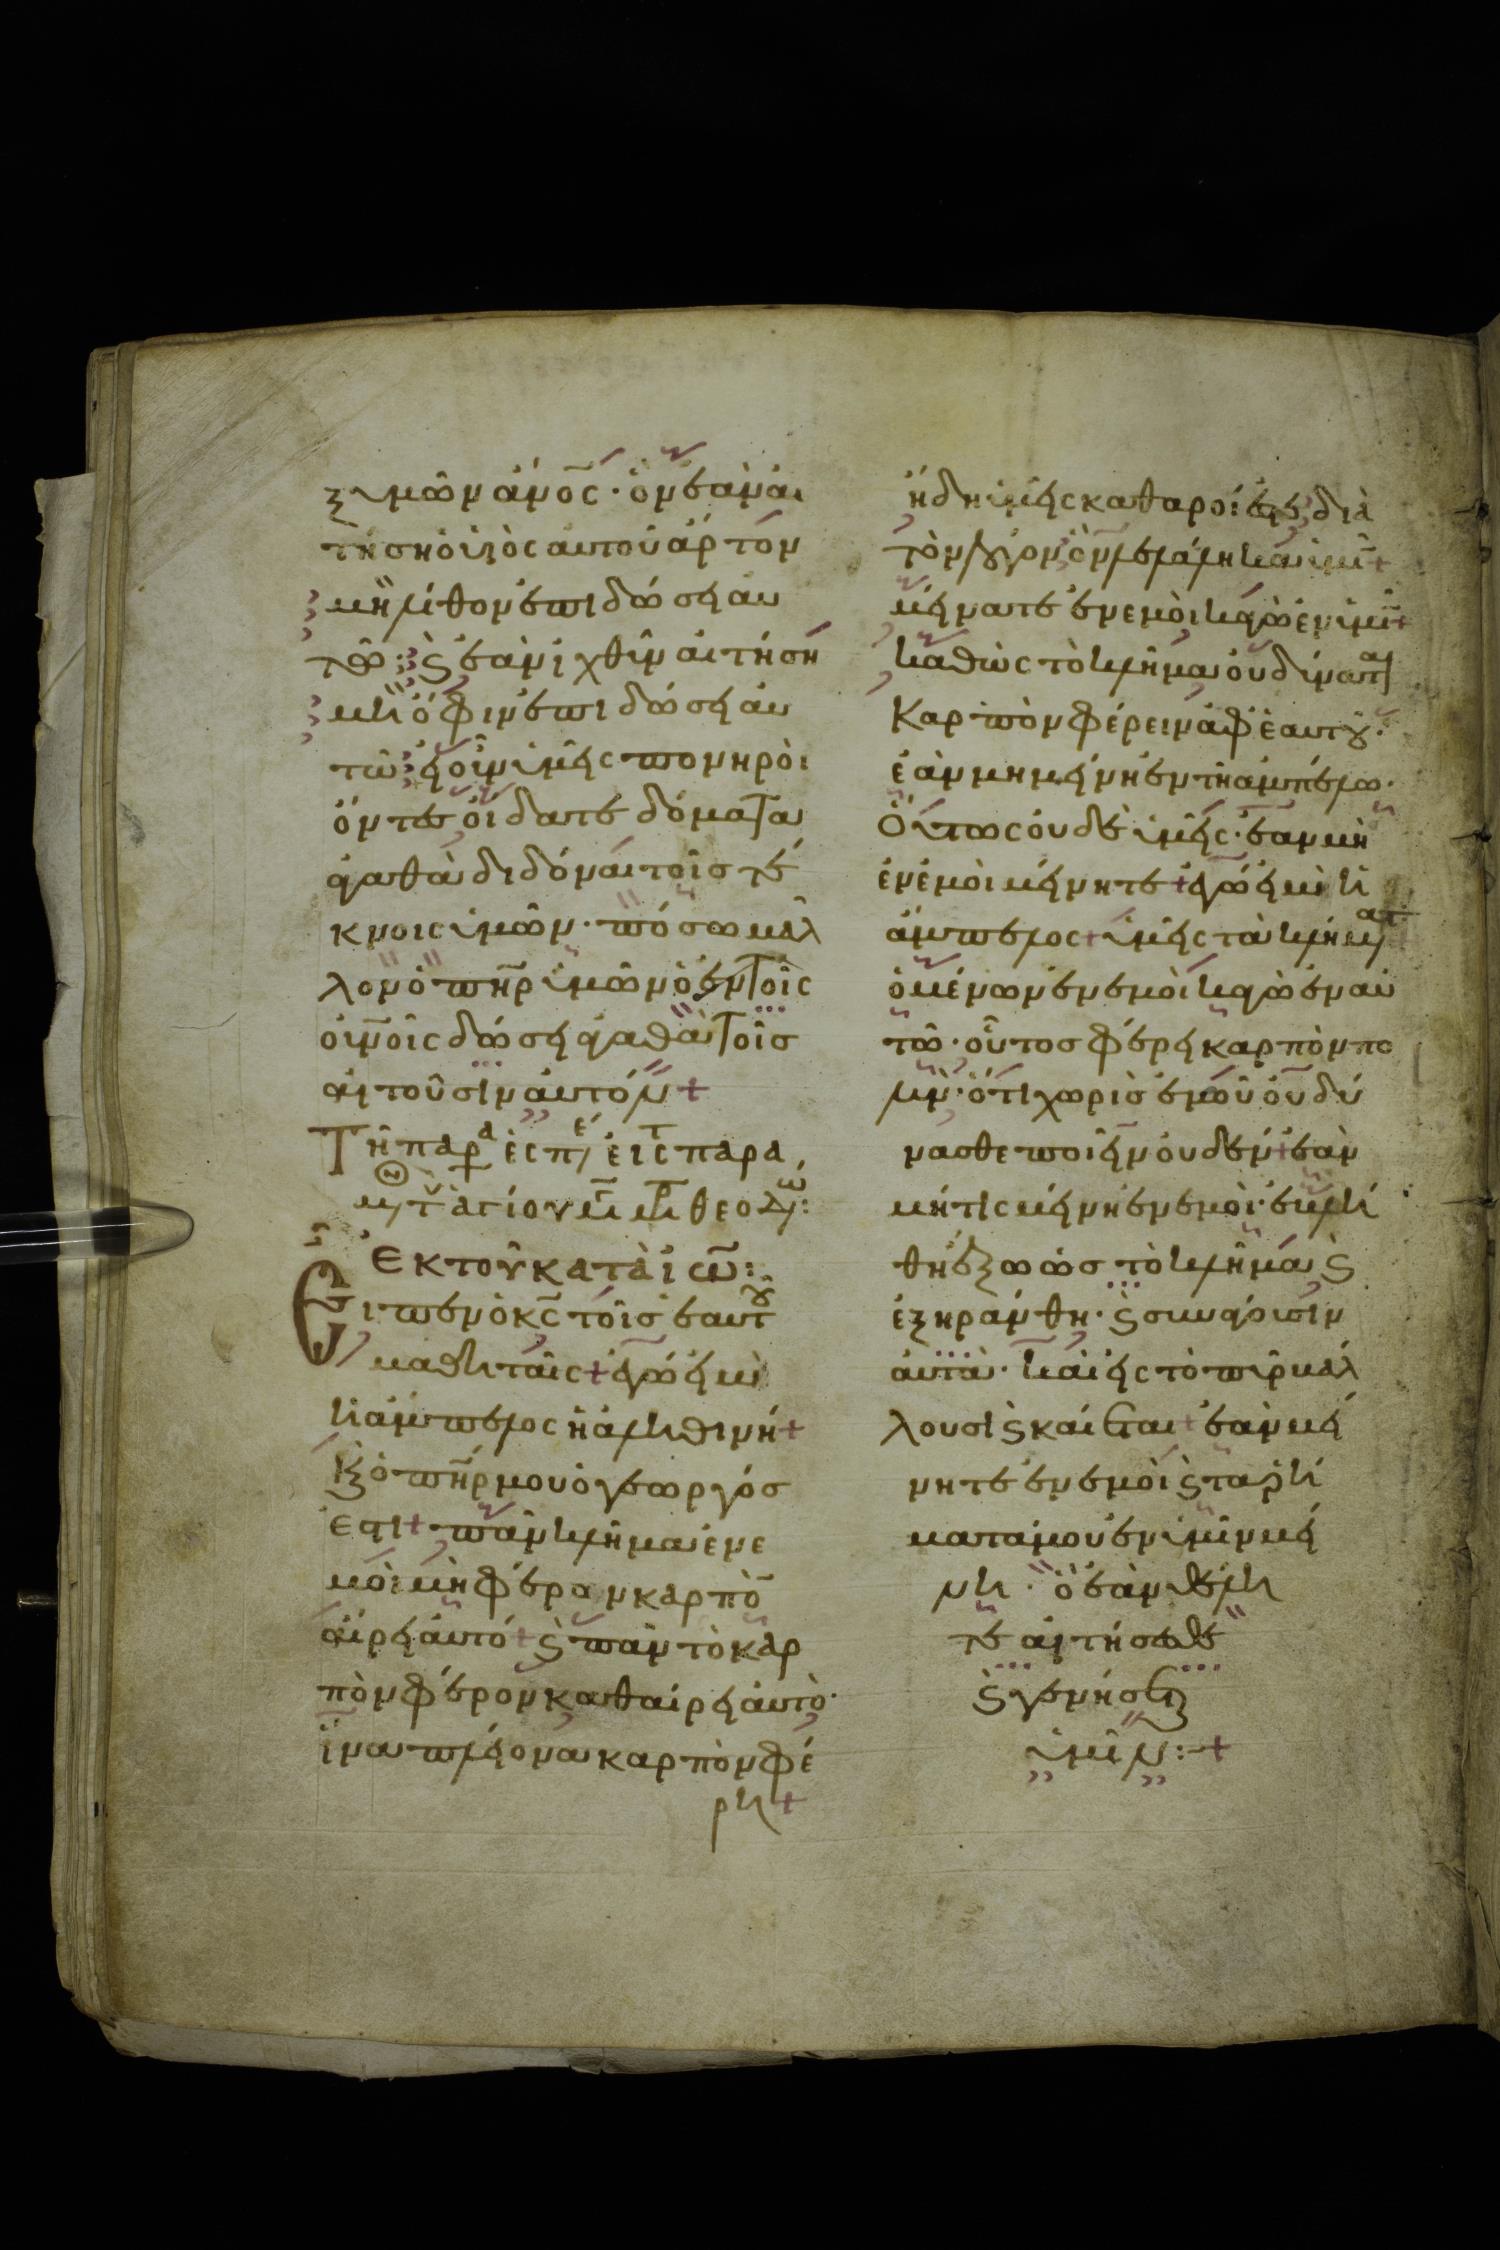 ξ ὑμῶν ἄν̅ος · ὃν ἐὰν αἰ
τήσῃ ὁ υἱὸς αὐτοῦ ἄρτον
μὴ λίθον ἐπιδώσει αὐ
τῶ · ϗ ἐὰν ἰχθὺν αἰτήσῃ
μὴ ὄφιν ἐπιδώσει αὐ
τῶ · εἰ οὖν ὑμεῖς πονηροὶ
ὄντες οἴδατε δόματα
ἀγαθὰ διδόναι τοῖς τέ
κνοις ὑμῶν · πόσω μᾶλ
λον ὁ πη̅ρ ὑμῶν ὁ ἐν τοῖς
οὐν̅οῖς δώσει ἀγαθὰ τοῖς
αἰτοῦσιν αὐτόν +
Τῆ παρα ἑσπε εἰς τ παρα
μ τ ἁγίου θεολω :
Ἐκ τοῦ κατὰ ἰω̅ :
Εἶπεν ὁ κ̅ς τοῖς ἑαυτοῦ
μαθηταῖς + ἐγώ εἰμι
ἡ ἄμπελος ἡ ἀληθινή +
ϗ ὁ πη̅ρ μου ὁ γεωργός
ἐστι + πᾶν κλῆμα ἐν ἐ
μοὶ μὴ φέρον καρπὸ̅
αἴρει αὐτό + ϗ πᾶν τὸ καρ
πὸν φέρον καθαίρει αὐτὸ ·
ἵνα πλείονα καρπὸν φέ
ρη +
ἤδη ὑμεῖς καθαροί ἐστε διὰ
τὸν λόγον ὃν λελάληκα ὑμῖ̅ +
μείνατε ἐν ἐμοὶ κἀγὼ ἐν ὑμῖ̅ +
καθὼς τὸ κλῆμα οὐ δύναται
καρπὸν φέρειν ἀφ' ἑαυτοῦ ·
ἐὰν μὴ μείνη ἐν τῆ ἀμπέλω ·
Οὕτως οὐδὲ ὑμεῖς · ἐὰν μὴ
ἐν ἐμοὶ μείνητε + ἐγώ εἰμι ἡ
ἄμπελος + ὑμεῖς τὰ κλήματ
ὁ μένων ἐν ἐμοὶ κἀγὼ ἐν αὐ
τῶ · οὗτος φέρει καρπὸν πο
λύν · ὅτι χωρὶς ἐμοῦ οὐ δύ
νασθε ποιεῖν οὐδέν + ἐὰν
μή τις μείνη ἐν ἐμοὶ · ἐβλή
θη ἔξω ὡς τὸ κλῆμα ϗ
ἐξηράνθη · ϗ συνάγουσιν
αὐτὰ · καὶ εἰς τὸ πῦρ βάλ
λουσι ϗ καίεται + ἐὰν μεί
νητε ἐν ἐμοὶ ϗ τὰ ῥή
ματά μου ἐν ὑμῖν μεί
νη · ὃ ἐὰν θέλη
τε αἰτήσασθε
ϗ γενήσεται
ὑμῖν : +